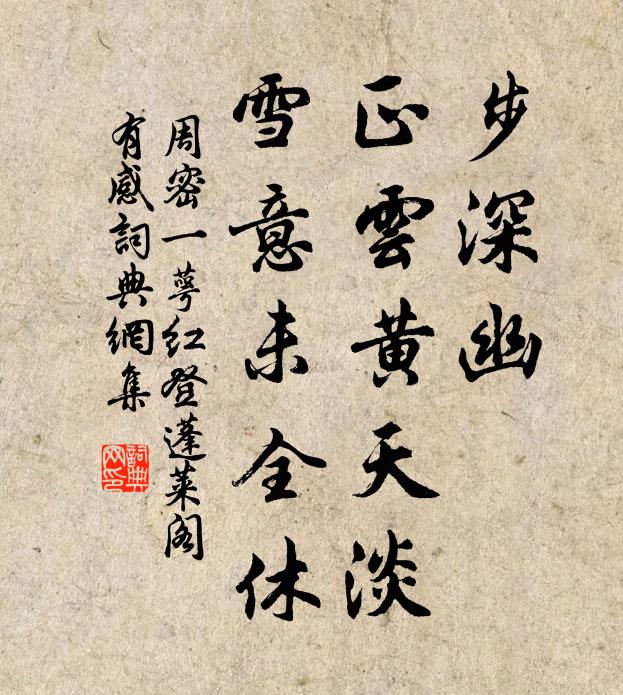 步深幽
正雲黄天淡
雪意未全休
周密一萼红登蓬莱阁
有感詞典網集
詞典
网印